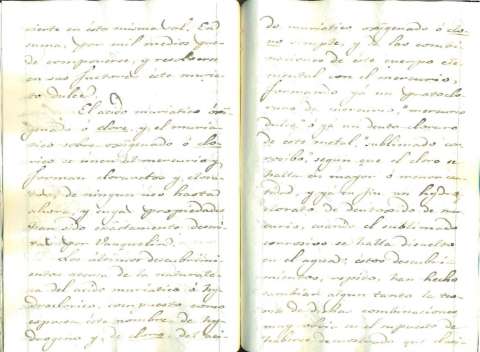 vierte en esta misma sal. En
suma, por mil medios pue-
de componerse, y resolverse
en sus factores este muria-
to dulce.
El acido muriatico oxi-
genado ó cloro, y el muria-
tico sobre oxigenado ó clo-
rico se unen al mercurio y
forman compuestos
de ningun uso hasta
ahora, y cuyas propiedades
han sido exactamente descri-
tas por Vauquelin.
Los últimos descubrimi-
entos acerca de la naturale-
za del acido muriatico ó hy-
droclorico, compuesto como
expresa este nombre, de hy-
drogeno y de cloro, del aci-
do muriatico oxigenado ó clo-
ro simple, y de las combi-
naciones de este cuerpo ele-
mental con el mercurio,
formando ya un protoclo-
ruro de mercurio, "mercurio
dulce" ó ya un deuto-cloruro
de este metal, "sublimado cor-
rosibo" segun que el cloro se
halla en mayor ó menor can-
tidad, y ya en fin un hydro-
clorato de deutoxido de mer-
curio, cuando el sublimado
corrosivo se halla disuelto
en el agua; estos descubri-
mientos, repito, han hecho
cambiar algun tanto la teo-
ria de dichas combinaciones
en el supuesto de
haberse demostrado que